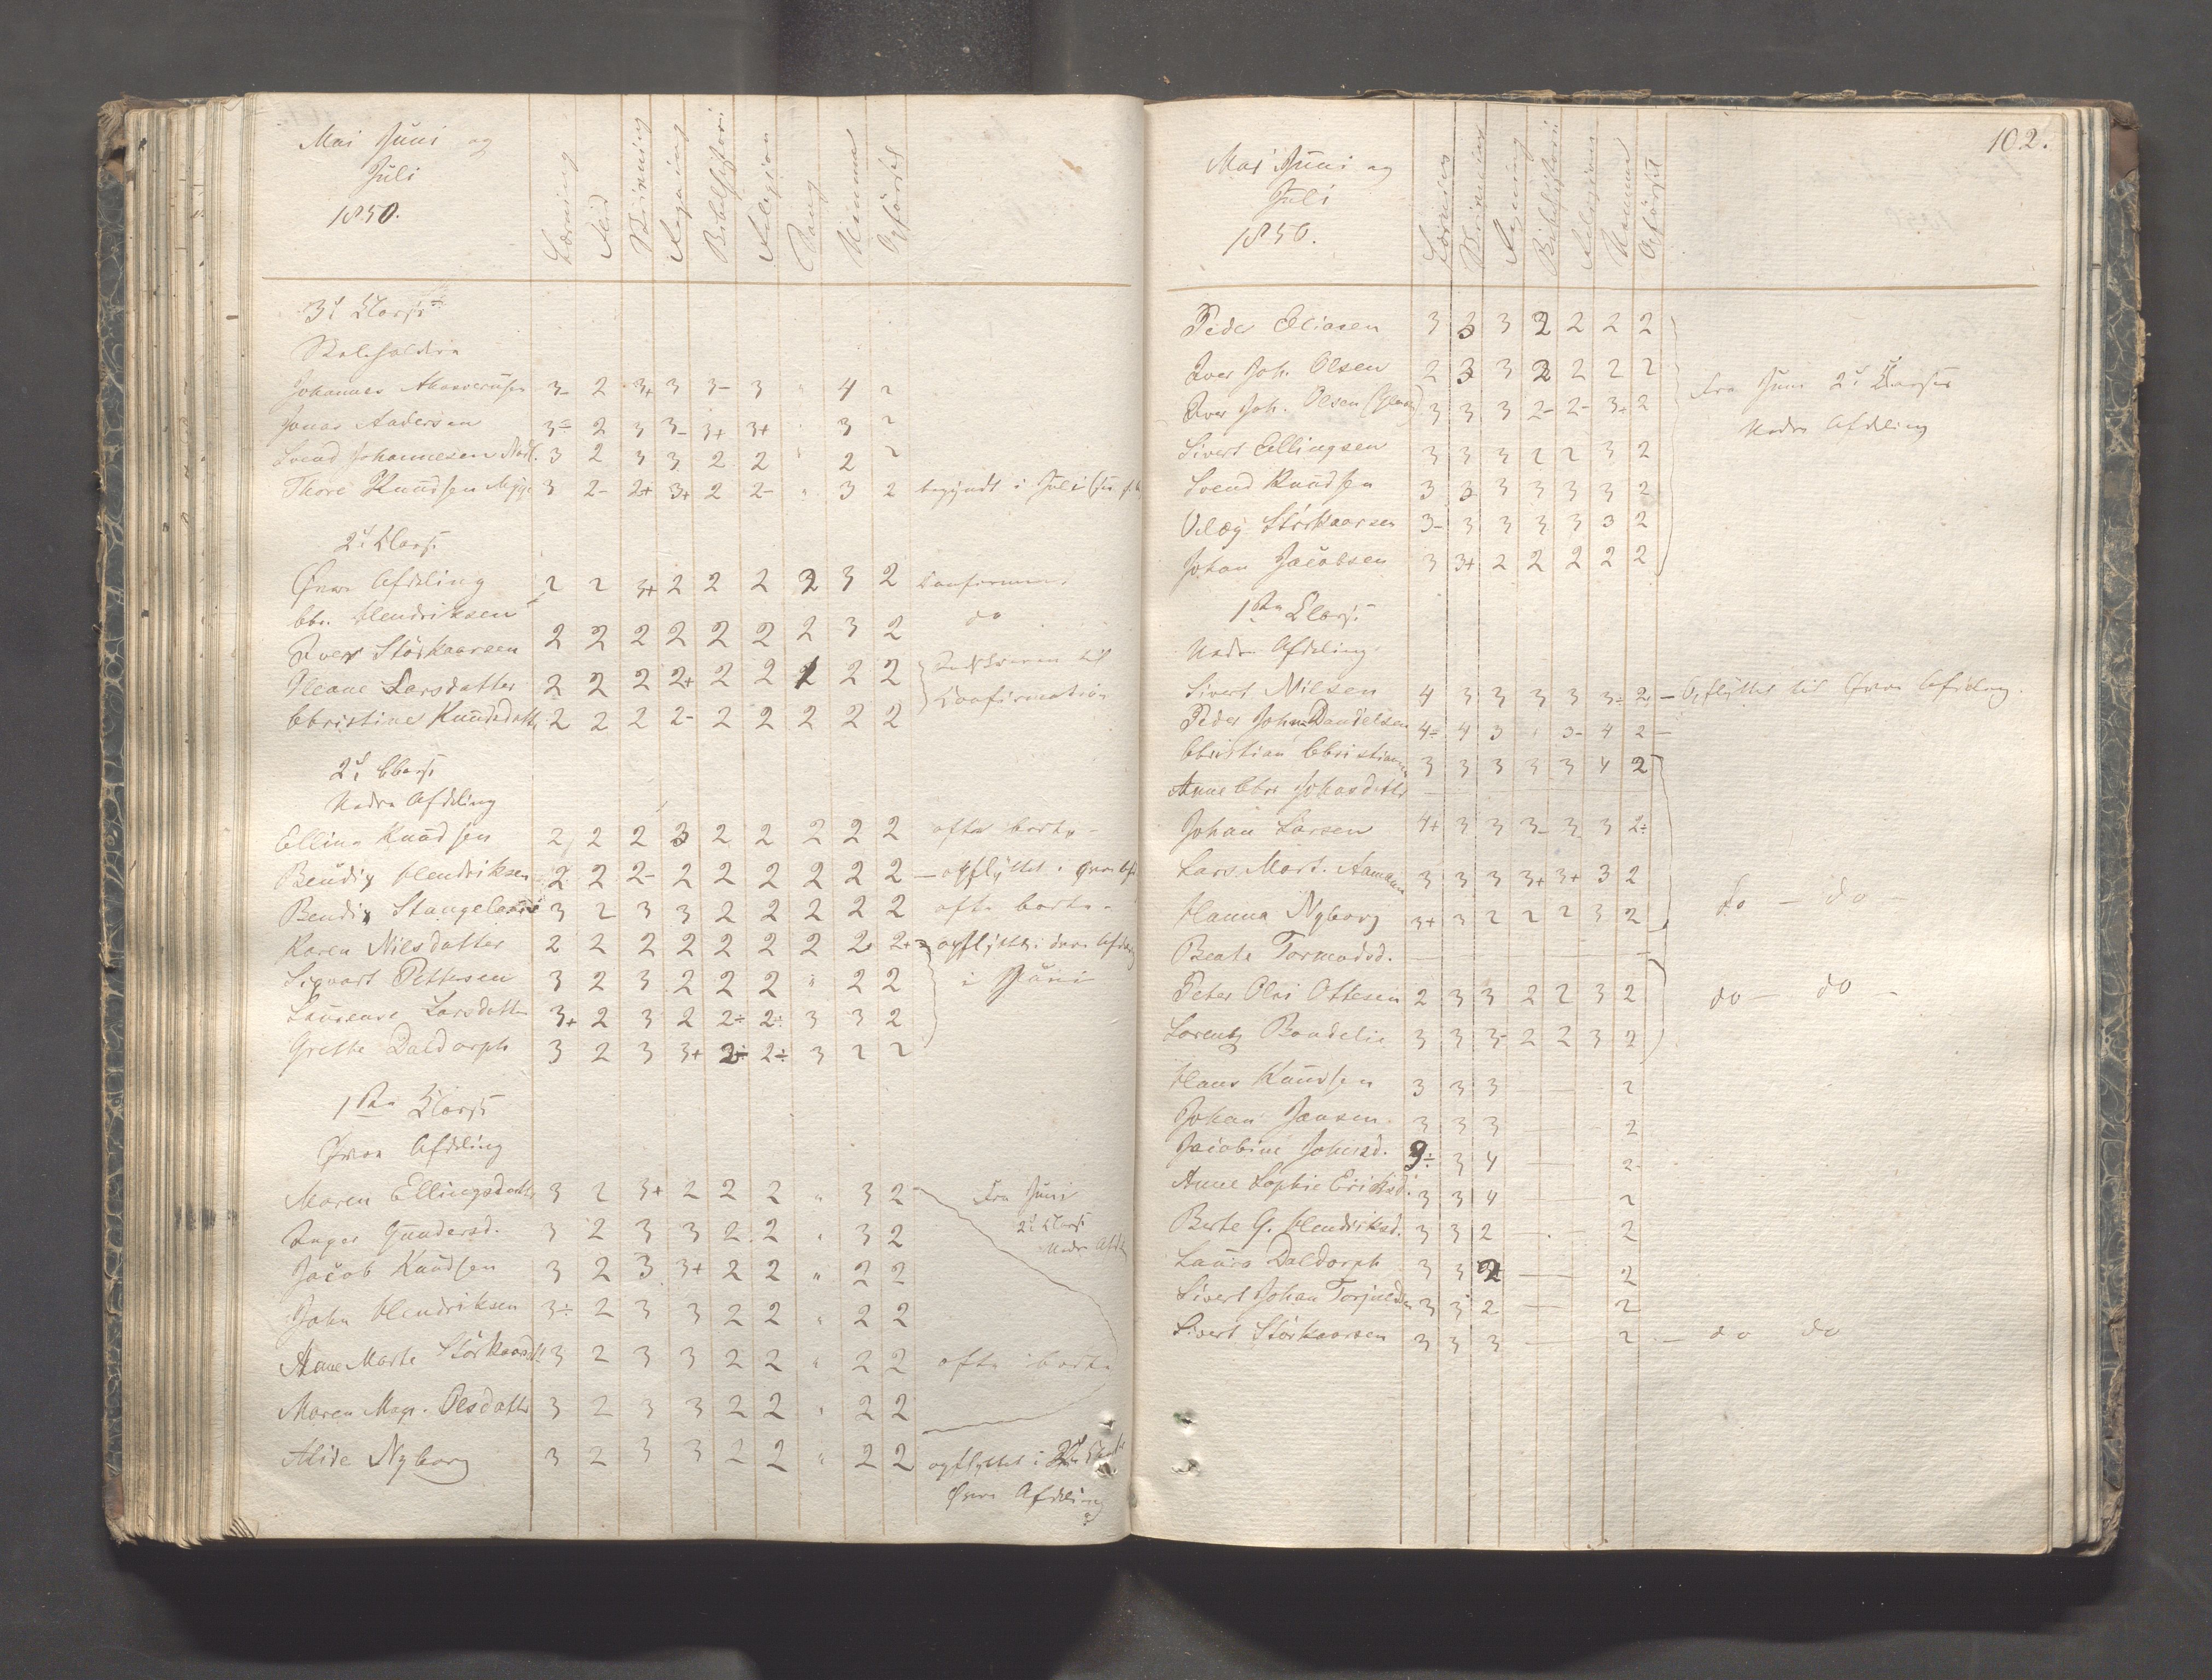 Mai Juni og
Juli
1850.
Læsning Flid Skrivning Regning Bibelhistori Religion Sang Komme Opførsel
3d Classe
Johannes 3- 2 3+ 3 3- 3 " 4 2
Jonas Andersen 3÷ 2 3 3- 3+ 3+ " 3 2
Svend Johannesen 3 2 3 3 2 2 " 2 2
Thore Knudsen 3 2- 2+ 3+ 2 2- " 3 2 begyndt i Juli
2d Classe
Øvre Afdeling 2 2 3+ 2 2 2 2 3 2
Chr. Hendriksen do
Iver Störkaarsen 2 2 2 2 2 2 2 3 2
Ileane Larsdatter 2 2 2 2+ 2 2 1 2 2 til
Christine Knudsdatt 2 2 2 2- 2 2 2 2 2 Confirmation
2d Classe
Nedre Afdeling
Elling Knudsen 2 2 2 3 2 2 2 2 2 ofte borte -
Bendix Hendriksen 2 2 2- 2 2 2 2 2 2 - opflyttet i øvre Afd
Bendix Stangeland 3 2 3 3 2 2 2 2 2 ofte borte -
Karen Nilsdatter 2 2 2 2 2 2 2 2 2+ - opflyttet i øvre Afdeling
Sigvart Pettersen 3 2 3 2 2 2 " 2 2 i Juni
Laurense Larsdatter 3+ 2 3 2 2÷ 2÷ 3 3 2
Grethe Daldorph 3 2 3 3+ 2÷ 2÷ 3 2 2
1ste Classe
Øvre Afdeling
Maren Ellingsdatter 3 2 3+ 2 2 2 " 3 2 Fra Juni
2d Classe
Inger Gundersd. 3 2 3 3 2 2 " 3 2 Nedre Afd
Jacob Knudsen 3 2 3 3+ 2 2 " 2 2
John Hendriksen 3÷ 2 3 3 2 2 " 2 2
Anne Marte Störkaarsdt 3 2 3 3 2 2 " 2 2 ofte borte
Maren Mag. Olsdatter 3 2 3 3 2 2 " 2 2
Alide Nyborg 3 2 3 3 2 2 " 2 2 opflyttet i
Øvre Afdeling
102.
Mai Juni og
Juli
1850.
Læsning Skrivning Regning Bibelhistori Religion Komme Opførsel
Peder Eliasen 3 3 3 2 2 2 2
Iver Joh. Olsen 2 3 3 2 2 2 2 Fra Juni 2d Classe
Iver Joh. Olsen 3 3 3 2- 2- 3÷ 2
Nedre Afdeling
Sivert Ellingsen 3 3 3 2 2 3 2
Svend Knudsen 3 3 3 3 3 3 2
Störkaarsen 3- 3 3 3 3 3 2
Johan Jacobsen 3 3+ 2 2 2 2 2
1ste Classe
Nedre Afdeling
Sivert Nilsen 4 3 3 3 3 3÷ 2 - Opflyttet til Øvre Afdeling.
Peder John Danielsen 4÷ 4 3 " 3- 4 2 -
Christian Christiansen 3 3 3 3 3 4 2
Anne Chr. Johnsdatter
Johan Larsen 4+ 3 3 3- 3 3 2÷
Lars Mart. Aamann 3 3 3 3+ 3+ 3 2 do - do -
Hanna Nyborg 3+ 3 2 2 2 3 2
Beate Tormodsd.
Peter Olai Ottesen 2 3 3 2 2 3 2 do - do -
Lorentz Bandelie 3 3 3- 2 2 3 2
Hans Knudsen 3 3 3 — — 2
Johan Jansen 3 3 3 — — 2
Jacobine Johnsd. 3÷ 3 4 — — 2-
Anne Sophie Eriksd. 3 3 4 — — 2
Berte G. Hendriksd. 3 3 2 — — 2
Laurs Daldorph 3 3 2 — — 2
Sivert Johan Torjuelsen 3 3 2 — — 2
Sivert Störkaarsen 3 3 3 — — 2 - do do